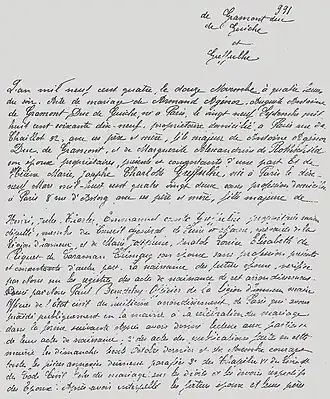 991
de Gramont duc
de Guiche
et
Greffulhe
L'an mil neuf cent quatre, le douze Novembre, à quatre heures
du soir. Acte de mariage de Armand Agénor Auguste Antoine
de Gramont, Duc de Guiche, né à Paris, le vingt neuf Septembre mil
huit cent soixante dix-neuf, propriétaire domicilié à Paris rue de
Chaillot 52, avec ses père et mère, fils majeur de Antoine Agénor
Duc de Gramont, et de Marguerite Alexandrine de Rothschild
son épouse propriétaires, présents et consentants d'une part. Et de
Hélène Marie Joseph Charlotte Greffulhe, née à Paris le dix
neuf Mars mil huit cent quatre vingt deux sans profession domiciliée
à Paris 8 rue d'Astorg avec ses père et mère, fille majeure de
Henri, Jules, Charles, Emmanuel comte Greffulhe propriétaire
député, membre du Conseil général de Seine et Marne,
Légion d'honneur et de Marie Joséphine Anatole Louise Elisabeth de
Riquet de Caraman Chimay son épouse sans profession présents
et consentants d'autre part,
de naissance
Dans
officier de l'état civil du huitième arrondissement de Paris qui avons
procédé publiquement en la mairie à la célébration du mariage
dans la forme suivante Après avoir donné lecture aux parties
de leur acte de naissance. 2° des actes des publications faites en cette
mairie les dimanches trente Octobre dernier et six Novembre courant
toutes les pièces annexées dûment paraphées 3° du Chapitre VI du Code
du Code Civil titre du mariage sur les droits et les devoirs respectifs
des Epoux. Après avoir interpellé les futurs époux et leurs pères